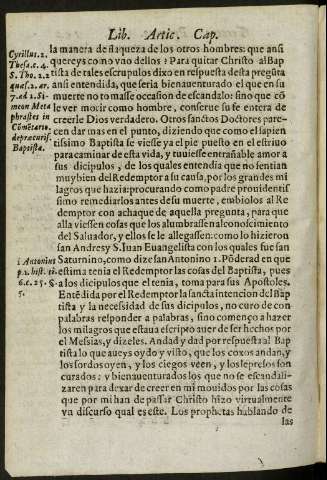 Lib. Artic. Cap.
la manera de flaqueza de los otros hombres: que ansi
quereys como vno dellos? Para quitar Christo al Bap
tista de tales escrupulos dixo en respuesta desta pregũta
ansi entendida, que seria bienauenturado el que en su
muerte no tomasse ocasion de escandalo: sino que cõ
le ver morir como hombre, conserue su fe entera de
creerle Dios verdadero. Otros sanctos Doctores pare-
cen dar mas en el punto, diziendo que como el sapien
tissimo Baptista se viesse ya el pie puesto en el estriuo
para caminar de esta vida, y tuuiesse entrañable amor a
sus dicipulos, de los quales entendia que no sentian
muy bien del Redemptor a su causa, por los grandes mi
lagros que hazia: procurando como padre prouidentis
simo remediarlos antes de su muerte, embiolos al Re
demptor con achaque de aquella pregunta, para que
alla viessen cosas que los alumbrassen al conoscimiento
del Saluador, y ellos se le allegassen: como lo hizieron
san Andres y S. Iuan Euangelista con los quales fue san
Saturnino, como dize san Antonino 1. Põderad en que
estima tenia el Redemptor las cosas del Baptista, pues
a los dicipulos que el tenia, toma para sus Apostoles.
Entẽdida por el Redemptor la sancta intencion del Bap
tista y la necessidad de sus dicipulos, no curo de con
palabras responder a palabras, sino començo a hazer
los milagros que estaua escripto auer de ser hechos por
el Messias, y dizeles. Andad y dad por respuesta al Bap
tista lo que aueys oydo y visto, que los coxos andan, y
los sordos oyen, y los ciegos veen, y los leprosos son
curados: y bienauenturados los que no se escandali-
zaren para dexar de creer en mi mouidos por las cosas
que por mi han de passar Christo hizo virtualmente
vn discurso qual es este. Los prophetas hablando de
las
Cyrillus. 2.
Thesa. c. 4.
S. Tho. 2.2
quæs. 2. ar.
7. ad 2. Si-
meon Meta
phrastes in
Cõmẽtario.
de præcurss.
Baptista.
1 Antonius
p. 1. hist. ti.
6. c. 25. §.
5.